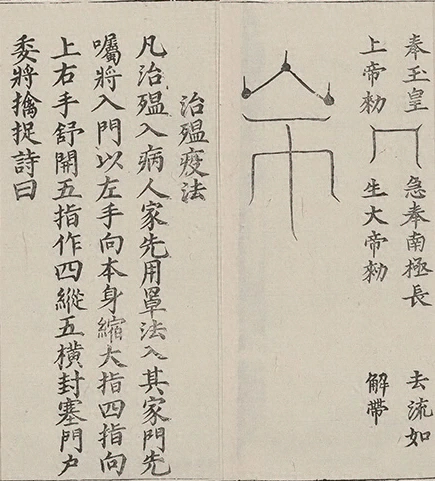 奉玉皇
上帝勑
急奉南極長
生大帝勑
去流如
解帶
治殟疫法
凡治殟入病人家先用罩法入其家門先
囑將入門以左手向本身縮大指四指向
上右手舒開五指作四縱五橫封塞門戶
委將擒捉詩曰